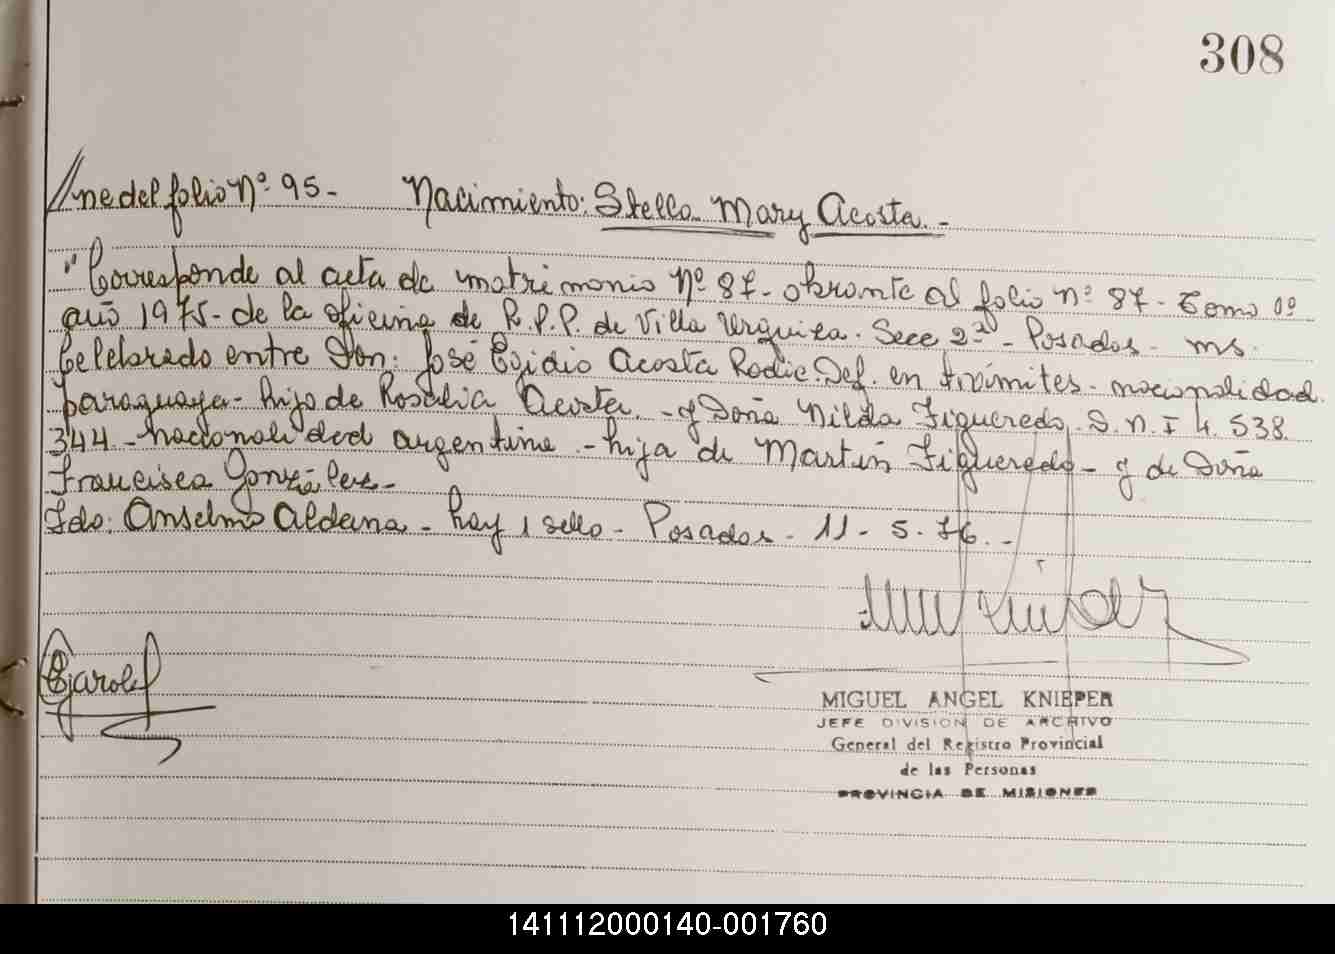 308
//ne del folio Nº 95.- Nacimiento: Stella Mary Acosta.-
"Corresponde al acta de matrimonio Nº 87- obrante al folio nº 87- Tomo 1º
año 1975- de la oficina de R.P.P. de Villa Urquiza. Secc 2ª- Posadas- ms.
Celebrado entre Don: José Egidio Acosta Radic. Def. en trámites- nacionalidad
paraguaya- hijo de Rosalia Acosta.- y Doña Nilda Figueredo, D.N.I 4.538.
344- nacionalidad argentina.- hija de Martín Figueredo- y de Doña
Francisca Gonzáles-
Fdo: Anselmo Aldana- hay 1 sello- Posadas- 11- 5- 76.-
MIGUEL ANGEL KNIEPER
JEFE DIVISION DE ARCHIVO
General del Registro Provincial
de las Personas
PROVINCIA DE MISIONES
141112000140-001760